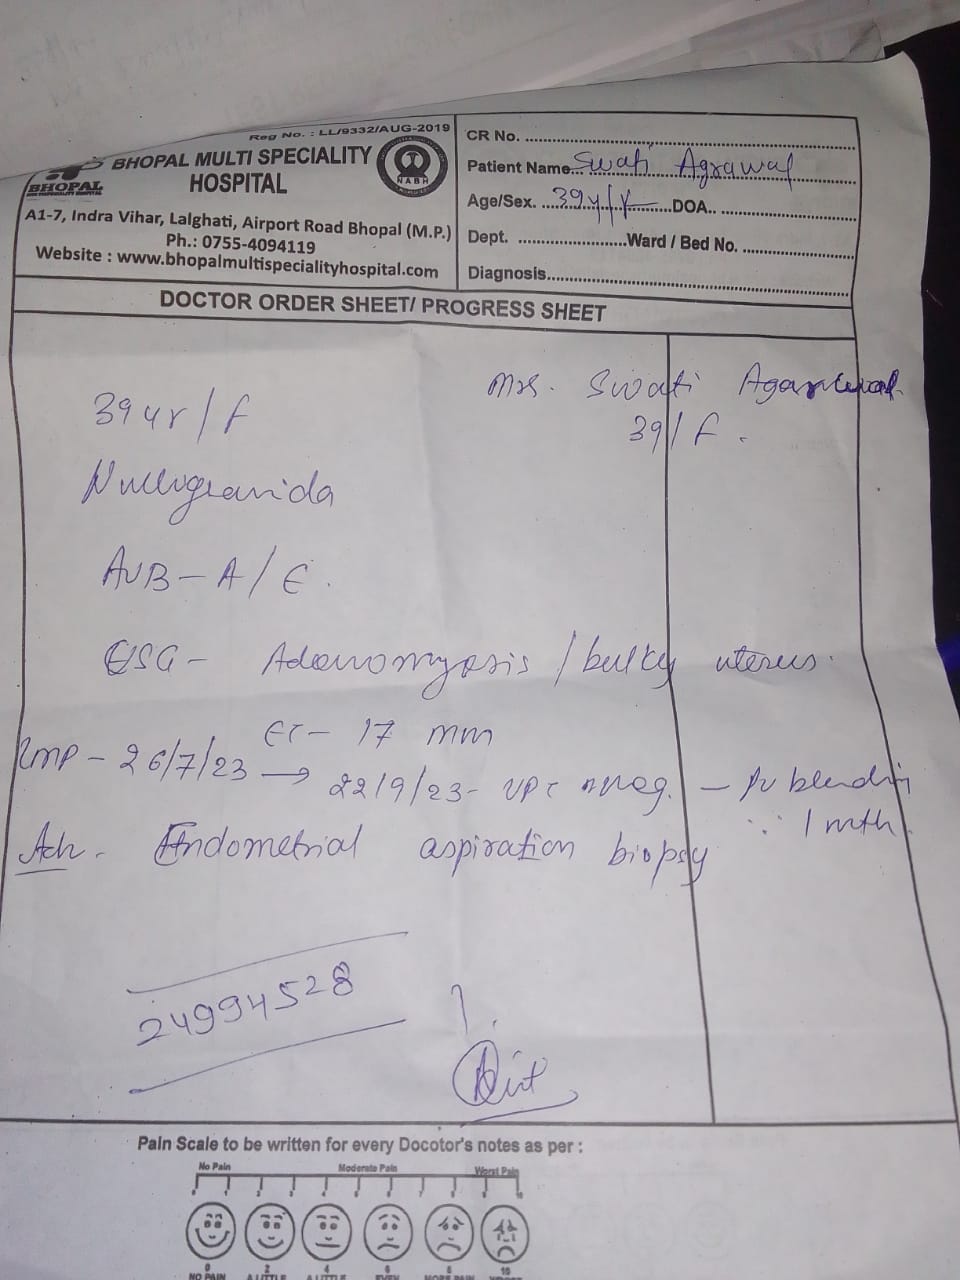 Reg No. : LL/9332/AUG-2019
BHOPAL MULTI SPECIALITY
HOSPITAL
BHOPAL
NABH
A1-7, Indra Vihar, Lalghati, Airport Road Bhopal (M.P.)
Ph.: 0755-4094119
Website : www.bhopalmultispecialityhospital.com
CR No.
Patient Name... Swati Agrawal
Age/Sex. ...39y/F...DOA..
Dept. ...Ward / Bed No.
Diagnosis...
DOCTOR ORDER SHEET/ PROGRESS SHEET
Mrs. Swati Agarwal
39/F.
39yr/F
Nulligravida
AUB-A/E.
USG- Adenomyosis / bulky uterus.
ET- 17 mm
LMP - 26/7/23 → 22/9/23- UPT neg. - Pv bleeding
∵ 1 mth.
Adv. Endometrial aspiration biopsy
24994528
Pain Scale to be written for every Docotor's notes as per :
No Pain Moderate Pain Worst Pain
0 2 4 6 8 10
NO PAIN A LITTLE A LITTLE EVEN MORE PAIN WORST